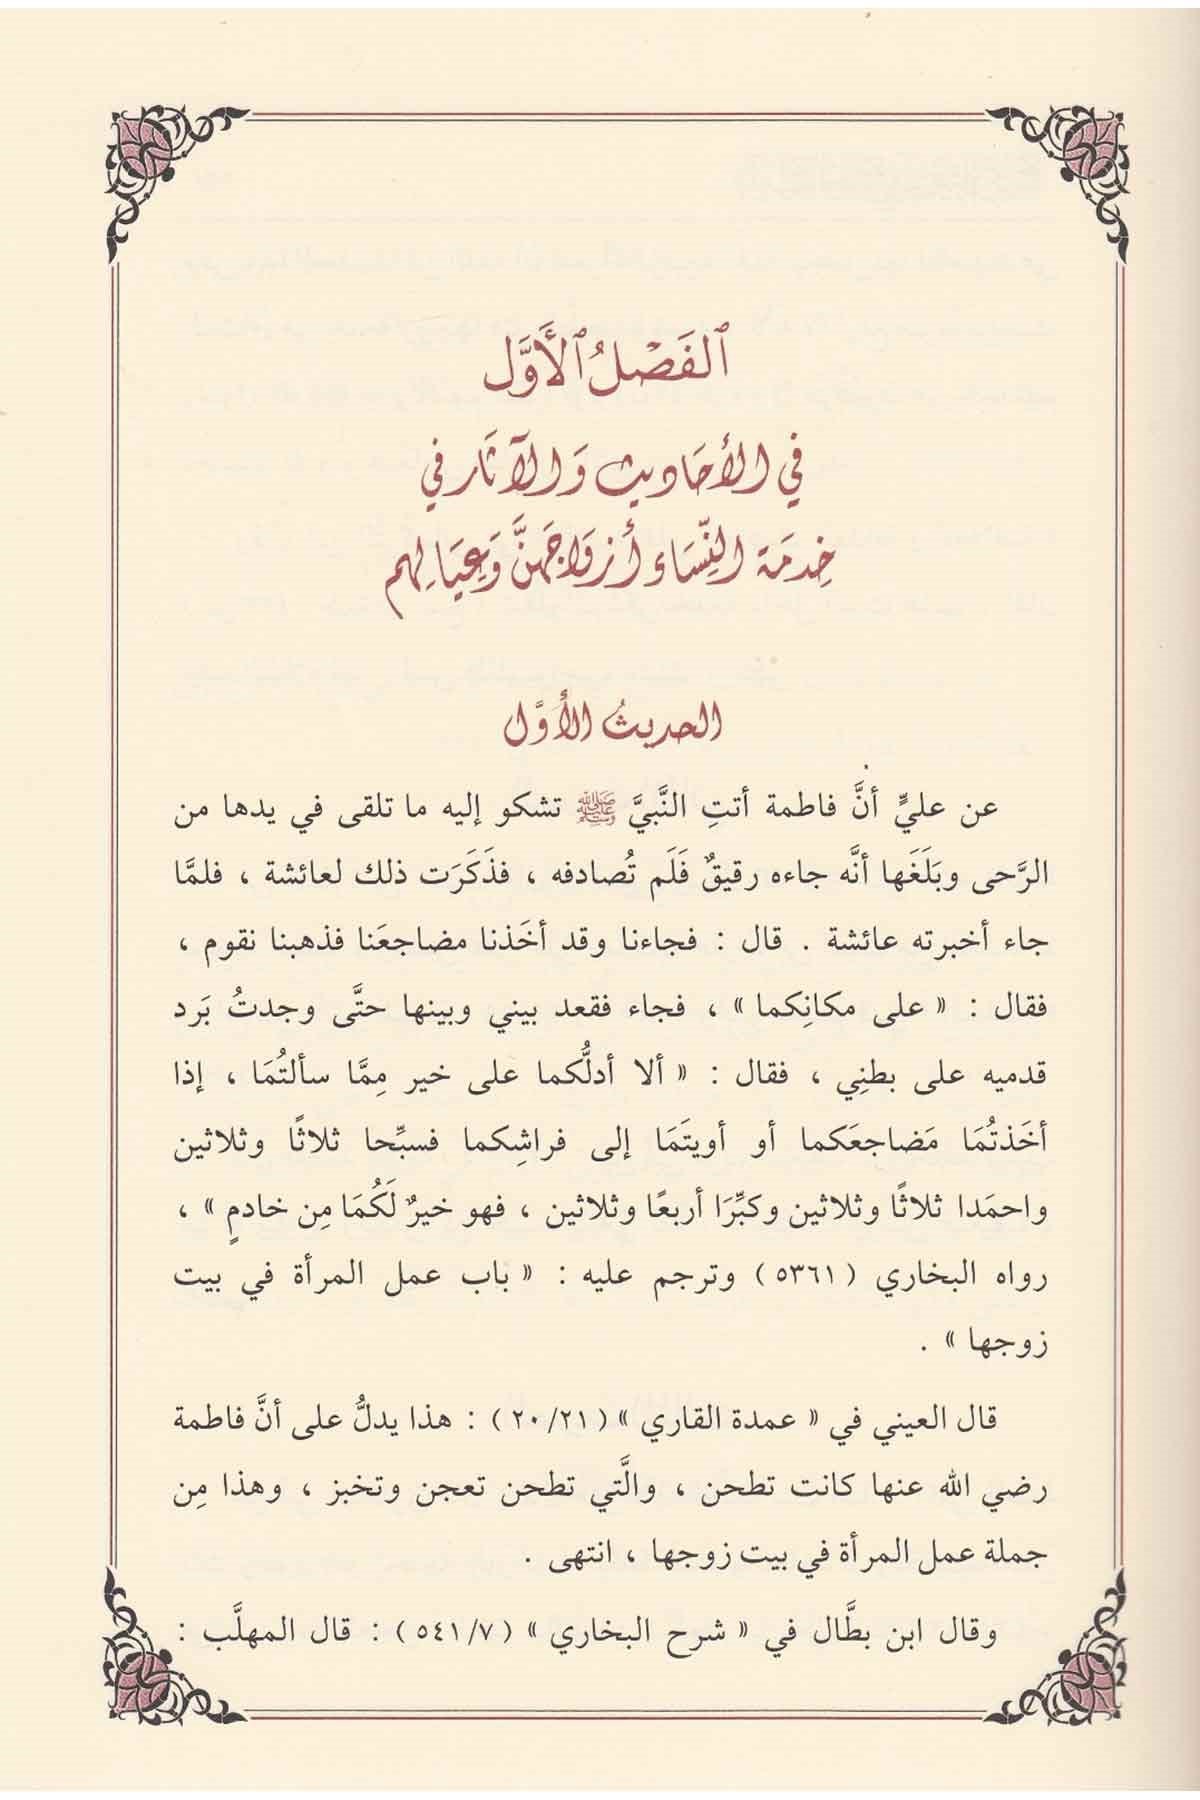 ٱلفَصْلُ ٱلأَوَّل
في الأحَاديث وَالآثَار في
خِدمَة النِّسَاء أزوَاجَهنَّ وَعِيَالهم
الحديثُ الأوَّل
عن عليٍّ أنَّ فاطمة أتتِ النَّبيَّ ﷺ تشكو إليه ما تلقى في يدها من
الرَّحى وبَلَغَها أنَّه جاءه رقيقٌ فَلَم تُصادفه ، فذَكَرَت ذلك لعائشة ، فلمَّا
جاء أخبرته عائشة . قال : فجاءنا وقد أخَذنا مضاجعَنا فذهبنا نقوم ،
فقال : « على مكانِكما » ، فجاء فقعد بيني وبينها حتَّى وجدتُ بَرد
قدميه على بطنِي ، فقال : « ألا أدلُّكما على خير مِمَّا سألتُمَا ، إذا
أخَذتُمَا مَضاجعَكما أو أويتَمَا إلى فراشِكما فسبِّحا ثلاثًا وثلاثين
واحمَدا ثلاثًا وثلاثين وكبِّرَا أربعًا وثلاثين ، فهو خيرٌ لَكُمَا مِن خادمٍ » ،
رواه البخاري ( ٥٣٦١ ) وترجم عليه : « باب عمل المرأة في بيت
زوجها » .
قال العيني في « عمدة القاري » ( ٢٠/٢١ ) : هذا يدلُّ على أنَّ فاطمة
رضي الله عنها كانت تطحن ، والَّتي تطحن تعجن وتخبز ، وهذا مِن
جملة عمل المرأة في بيت زوجها ، انتهى .
وقال ابن بطَّال في « شرح البخاري » ( ٥٤١/٧ ) : قال المهلَّب :